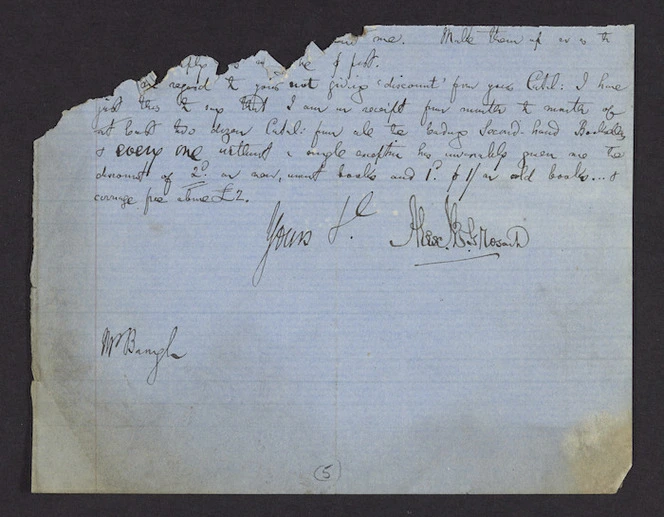 me. Make them up so as to
reply
regard to your not giving 'discount' from your Catal: I have
just this to say that I am in receipt from month to month of
at least two dozen Catal: from all the leading Second-hand Booksellers
& every one without a single exception has invariably given me the
discount of 2d. on new, uncut books and 1d. p 1/ on old books... &
carriage free above £2.
Yours f.l
Alex. B. Grosart
Mr Bangh
(5)